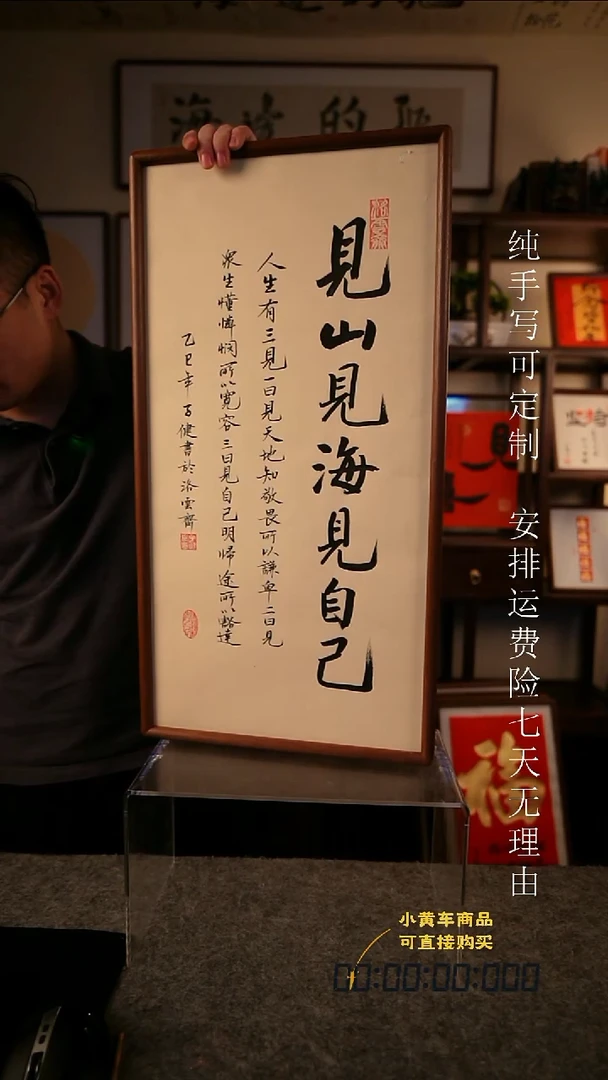 見山見海見自己
人生有三見一曰見天地知敬畏所以謙卑二曰見
眾生懂憐憫所以寬容三曰見自己明歸途所以豁達
乙巳年百健書於洛雲齋
纯手写可定制 安排运费险七天无理由
小黄车商品
可直接购买
00:00:00:000
福